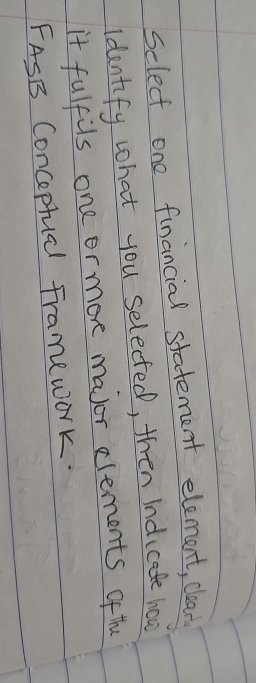 Select one financial statement element, clearly
identify what you selected, then indicate how
it fulfils one or more major elements of the
FASB Conceptual framework.